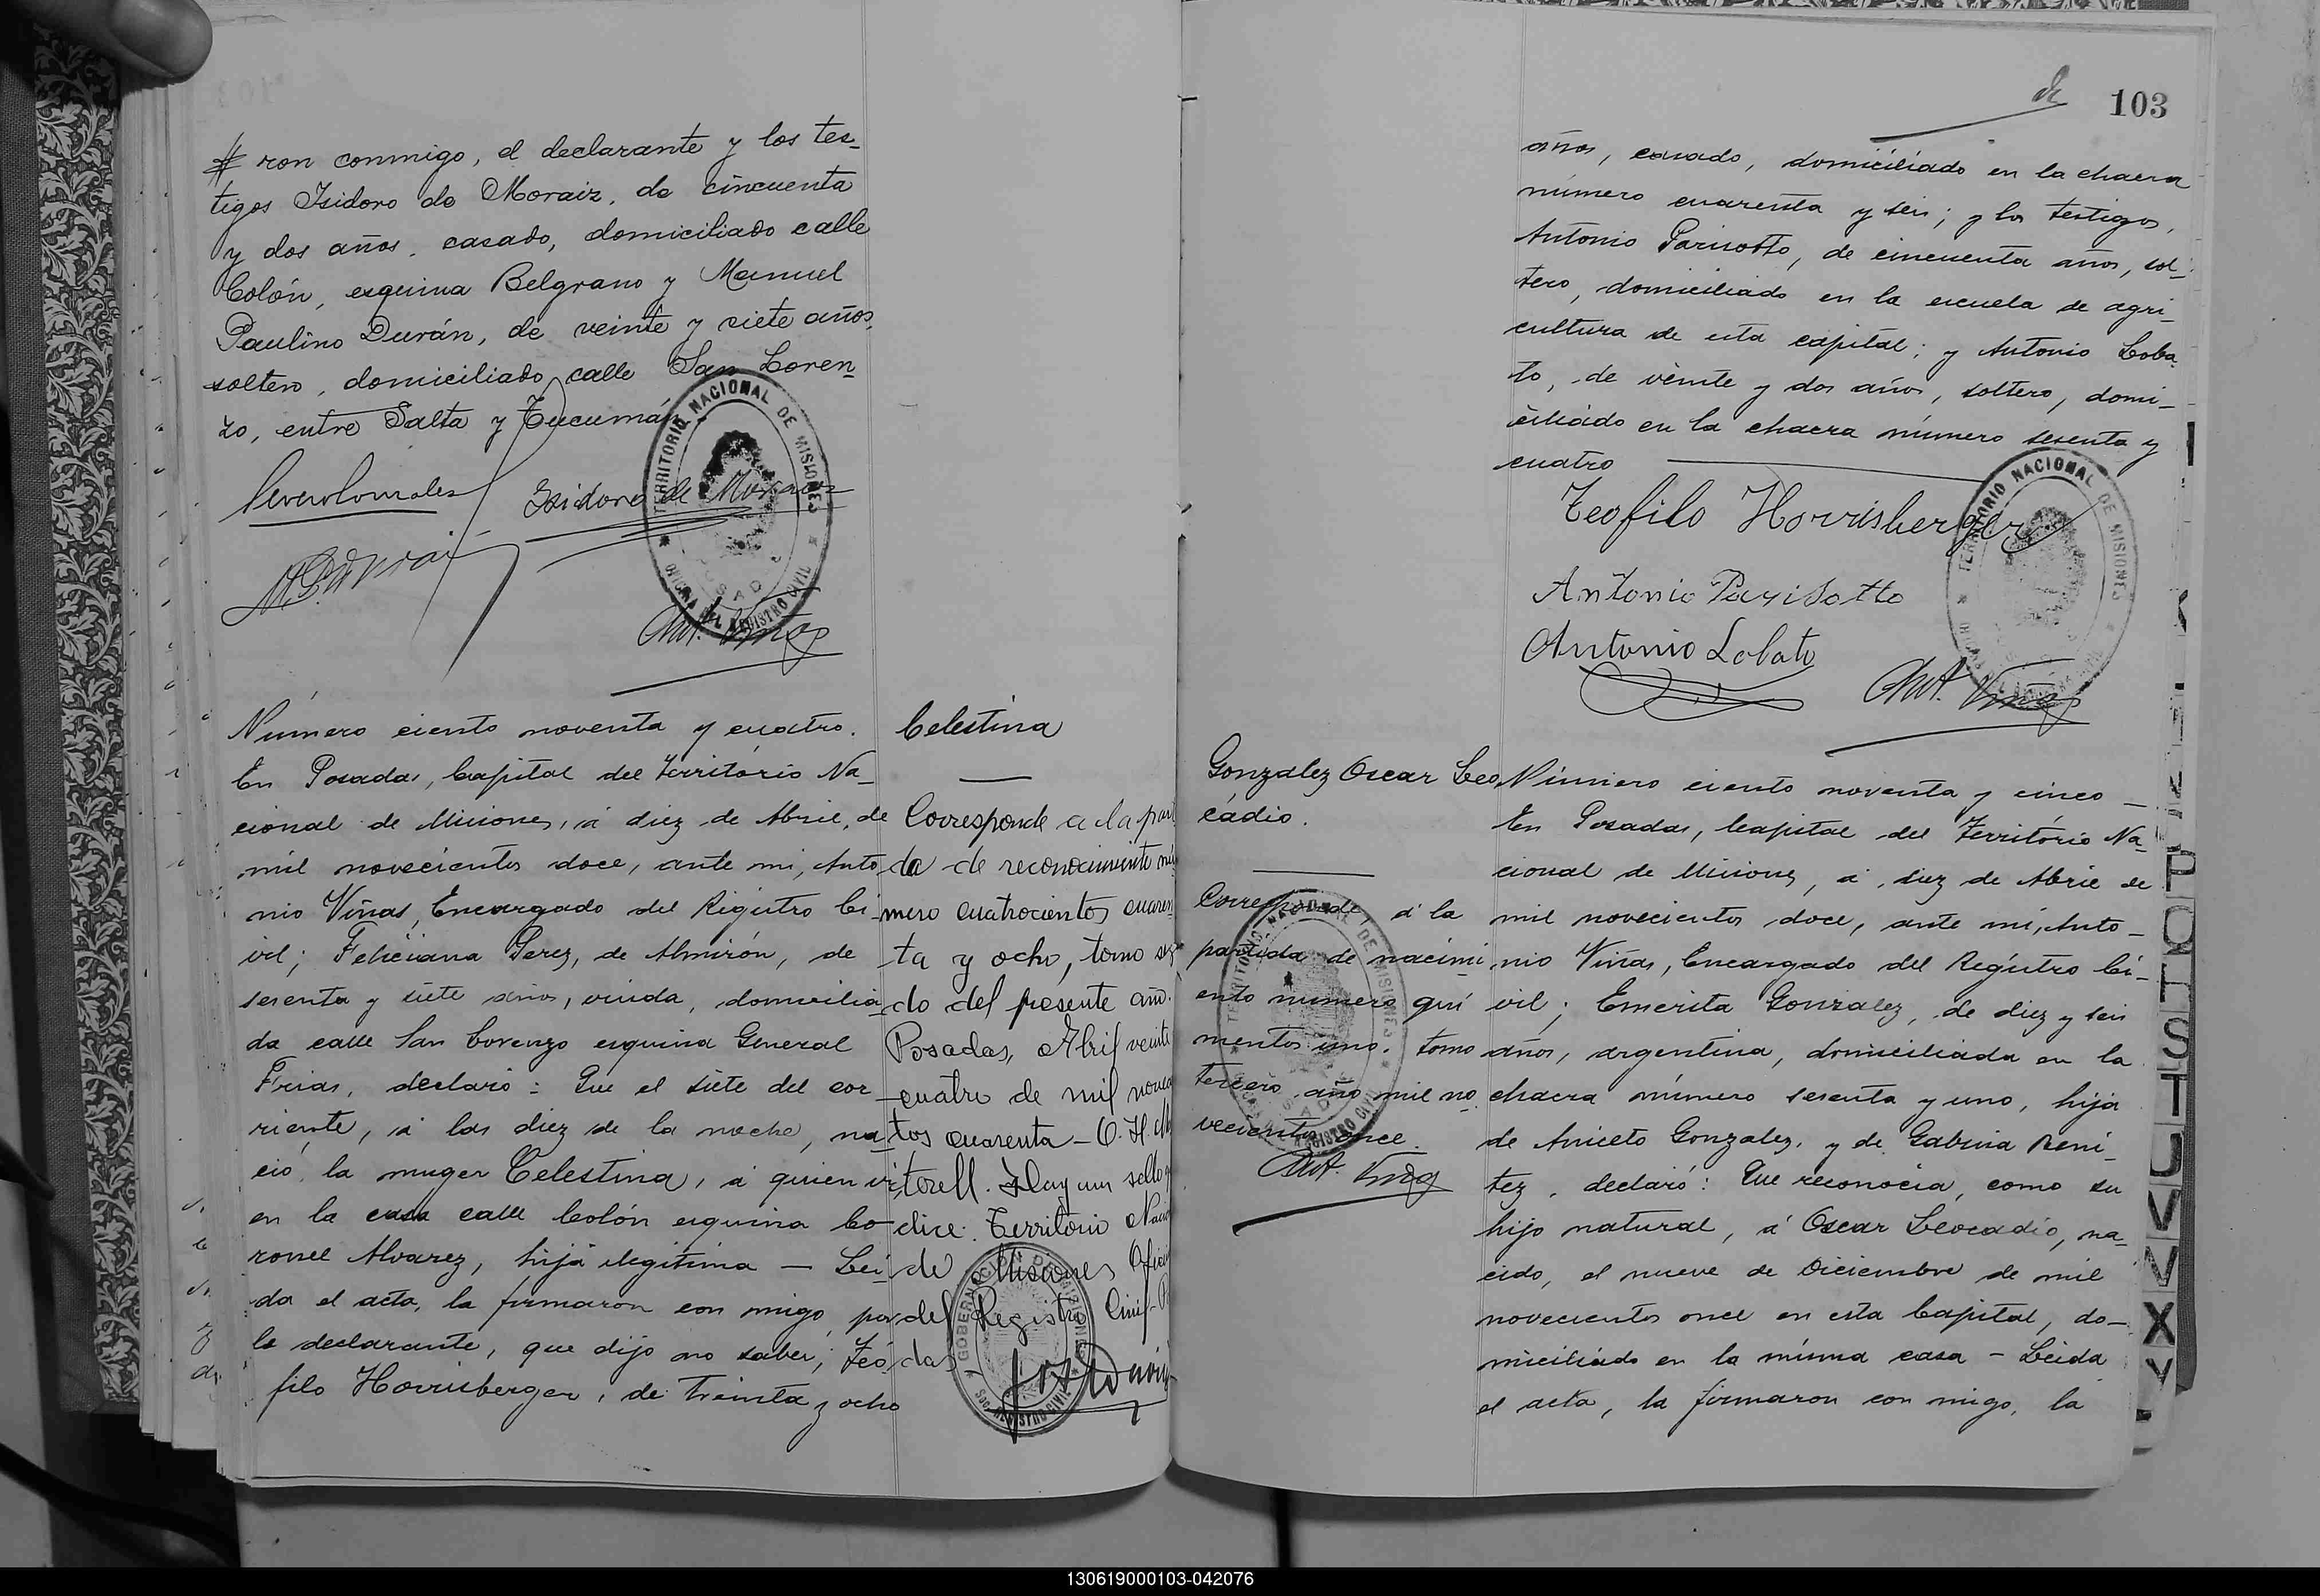 # ron conmigo, el declarante y los tes-
tigos Isidoro de Moraiz, de cincuenta
y dos años, casado, domiciliado calle
Colón, esquina Belgrano y Manuel
Paulino Durán, de veinte y siete años,
soltero, domiciliado calle San Loren-
zo, entre Salta y Tucumán
Isidoro de Moraiz
TERRITORIO NACIONAL DE MISIONES
OFICINA DEL REGISTRO CIVIL
POSADAS
Ant. Viñas
Número ciento noventa y cuatro.
En Posadas, Capital del Territorio Na-
cional de Misiones, á diez de Abril, de
mil novecientos doce, ante mi, Anto-
nio Viñas, Encargado del Registro Ci-
vil; Feliciana Perez, de Almirón, de
sesenta y siete años, viuda, domicilia-
da calle San Lorenzo esquina General
Frias, declaró: Que el siete del cor-
riente, á las diez de la noche, na-
ció, la muger Celestina, á quien vi
en la casa calle Colón esquina Co-
ronel Alvarez, hija ilegítima — Lei-
da el acta, la firmaron con migo, por
la declarante, que dijo no saber; Teó-
filo Horrisberger, de treinta y ocho
Celestina
Corresponde a la parti
da de reconocimiento nú
mero cuatrocientos cuaren
ta y ocho, tomo
do del presente año.
Posadas, Abril veinte
cuatro de mil novecien
tos cuarenta — O. H. M
torell. Hay un sello q
dice: Territorio Nacio
de Misiones Ofici
del Registro Civil - P
das
GOBERNACION DE MISIONES
Sec. REGISTRO CIVIL
de
103
años, casado, domiciliado en la chacra
número cuarenta y seis; y los testigos,
Antonio Parisotto, de cincuenta años, sol-
tero, domiciliado en la escuela de agri-
cultura de esta capital; y Antonio Loba-
to, de veinte y dos años, soltero, domi-
ciliado en la chacra número sesenta y
cuatro
Teofilo Horrisberger
TERRITORIO NACIONAL DE MISIONES
Antonio Parisotto
Antonio Lobato
Ant. Viñas
Gonzalez Oscar Leo
cádio.
Corresponde á la
partida de nacimi
ento número qui
nientos uno. tomo
tercero, año mil no
vecientos once.
TERRITORIO NACIONAL DE MISIONES
REGISTRO CIVIL
Ant. Viñas
Número ciento noventa y cinco —
En Posadas, Capital del Territorio Na-
cional de Misiones, á diez de Abril de
mil novecientos doce, ante mi, Anto-
nio Viñas, Encargado del Registro Ci-
vil; Emerita Gonzalez, de diez y seis
años, argentina, domiciliada en la
chacra número sesenta y uno, hija
de Aniceto Gonzalez, y de Gabina Bení-
tez, declaró: Que reconocía, como su
hijo natural, á Oscar Leocadio, na-
cido, el nueve de Diciembre de mil
novecientos once en esta Capital, do-
miciliado en la misma casa — Leida
el acta, la firmaron con migo, la
P
Q
I
S
T
U
V
V
X
Y
130619000103-042076